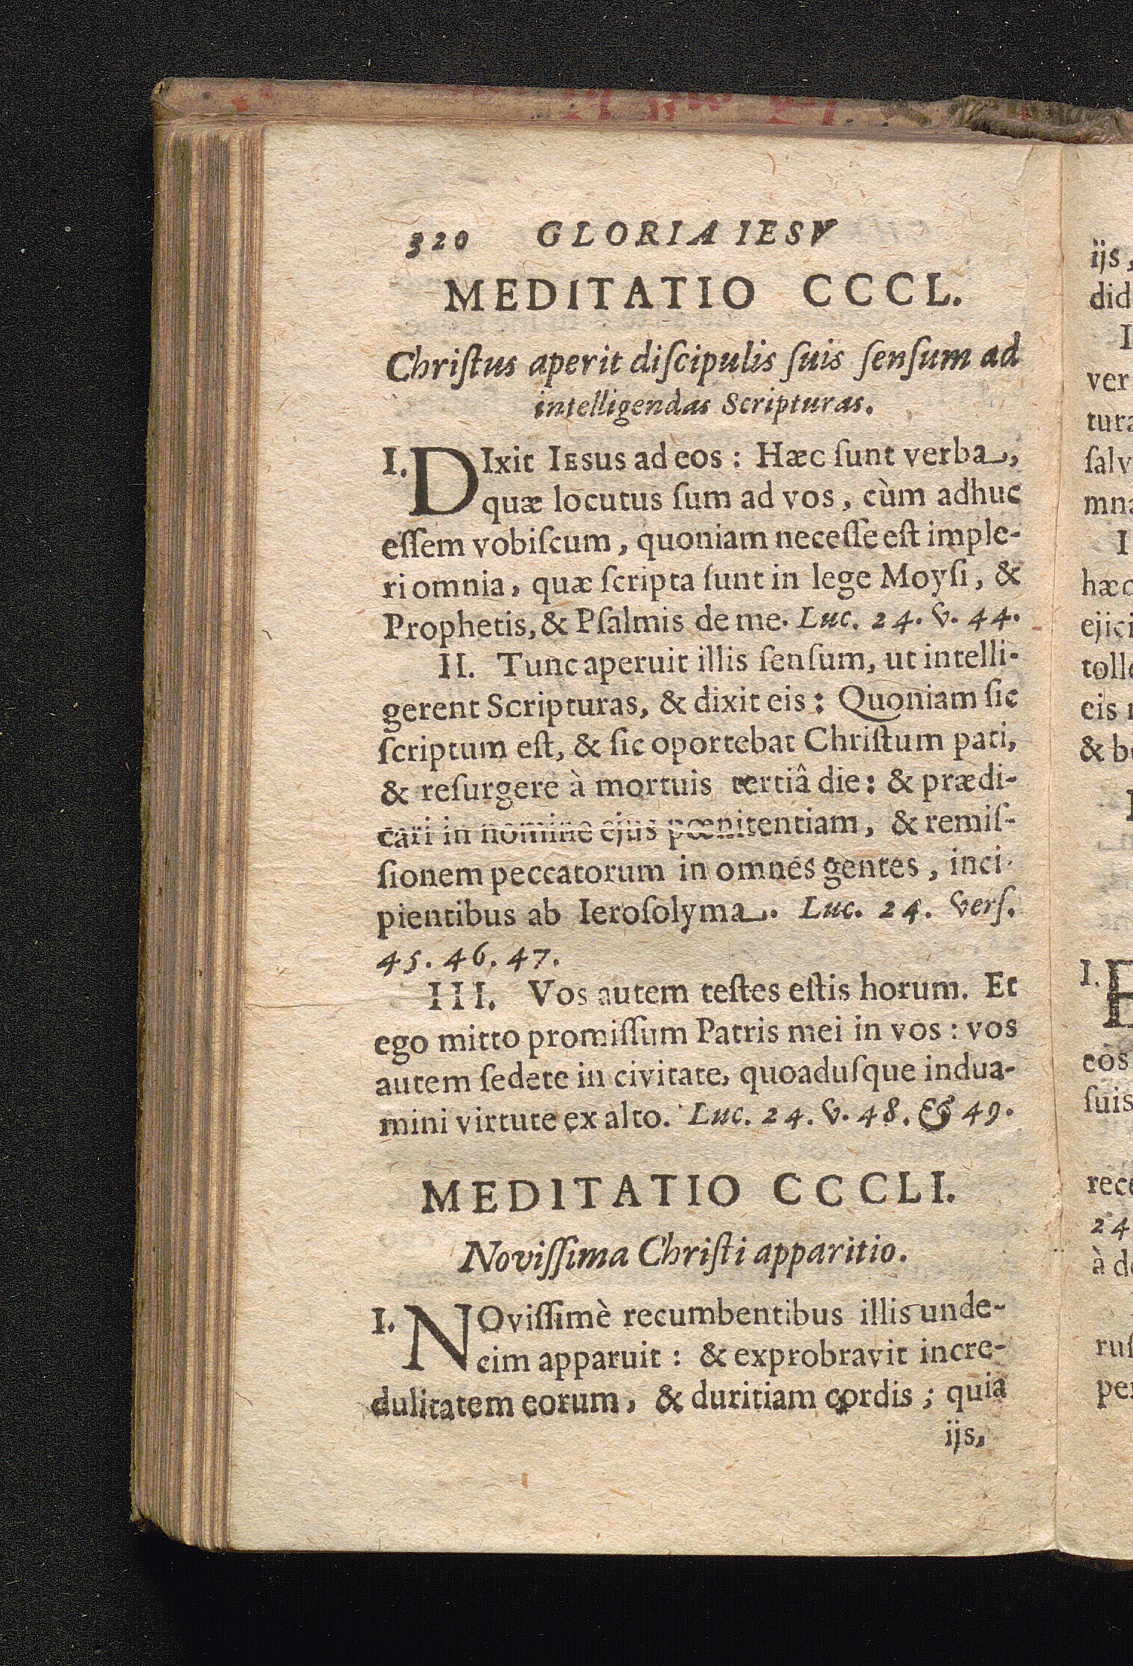 320 GLORIA IESV
MEDITATIO CCCL.
Chriſtus aperit diſcipulis ſuis ſenſum ad
intelligendas Scripturas.
I. DIxit IEsus ad eos : Hæc ſunt verba,
quæ locutus ſum ad vos, cùm adhuc
eſſem vobiſcum, quoniam neceſſe eſt imple-
ri omnia, quæ ſcripta ſunt in lege Moyſi, &
Prophetis, & Pſalmis de me. Luc. 24. v. 44.
II. Tunc aperuit illis ſenſum, ut intelli-
gerent Scripturas, & dixit eis : Quoniam ſic
ſcriptum eſt, & ſic oportebat Chriſtum pati,
& reſurgere à mortuis tertiâ die : & prædi-
cari in nomine ejus pœnitentiam, & remiſ-
ſionem peccatorum in omnes gentes, inci-
pientibus ab Ieroſolyma. Luc. 24. verſ.
45. 46. 47.
III. Vos autem teſtes eſtis horum. Et
ego mitto promiſſum Patris mei in vos : vos
autem ſedete in civitate, quoaduſque indua-
mini virtute ex alto. Luc. 24. v. 48. & 49.
MEDITATIO CCCLI.
Noviſſima Chriſti apparitio.
I. NOviſſimè recumbentibus illis unde-
cim apparuit : & exprobravit incre-
dulitatem eorum, & duritiam cordis ; quia
ijs,
ijs,
did
I
ver
tura
ſalv
mna
I
hæc
ejici
tolle
eis
& b
I.
eos
ſuis
rece
24
à d
ruſ
per